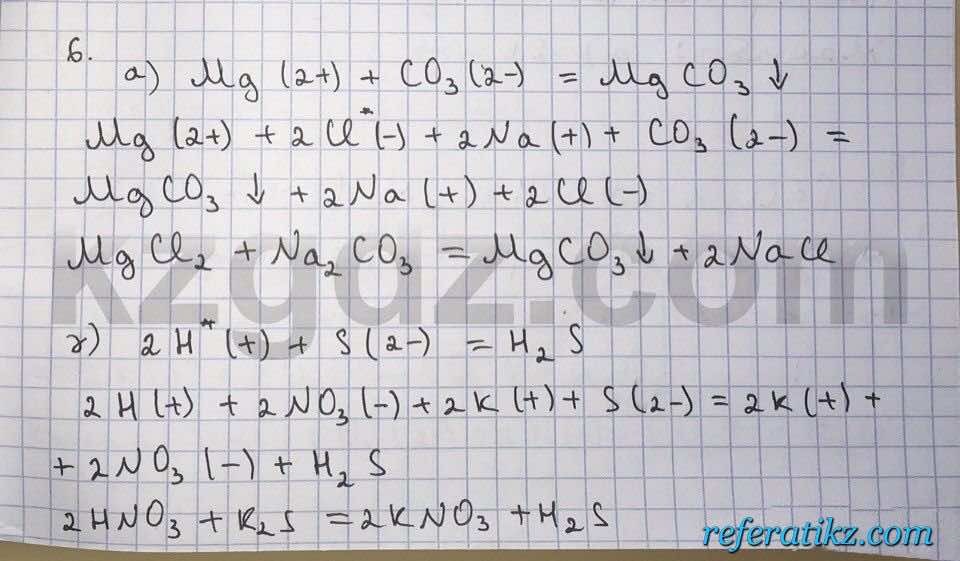 6.
а) Mg (2+) + CO₃ (2-) = MgCO₃ ↓
Mg (2+) + 2Cl* (-) + 2Na (+) + CO₃ (2-) =
MgCO₃ ↓ + 2Na (+) + 2Cl (-)
MgCl₂ + Na₂CO₃ = MgCO₃↓ + 2NaCl
kzgdz.com
г) 2H* (+) + S (2-) = H₂S
2H (+) + 2NO₃ (-) + 2K (+) + S (2-) = 2K (+) +
+ 2NO₃ (-) + H₂S
2HNO₃ + K₂S = 2KNO₃ + H₂S
referatikz.com